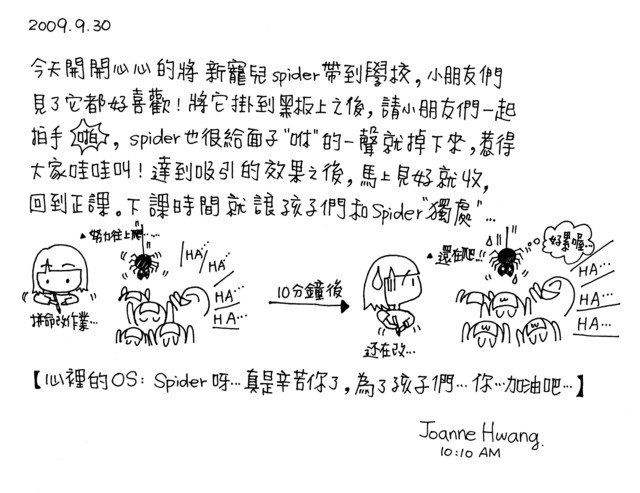 2009.9.30
今天開開心心的將新寵兒spider帶到學校,小朋友們
見了它都好喜歡!將它掛到黑板上之後,請小朋友們一起
拍手啪,spider也很給面子"咻"的一聲就掉下來,惹得
大家哇哇叫!達到吸引的效果之後,馬上見好就收,
回到正課。下課時間就讓孩子們和Spider"獨處"…
▲努力往上爬……
HA…
HA…
HA…
HA…
拼命改作業…
10分鐘後
▲還在爬!!
好累喔…
HA…
HA…
HA…
还在改…
【心裡的OS: Spider呀…真是辛苦你了,為了孩子們…你…加油吧…】
Joanne Hwang.
10:10 AM